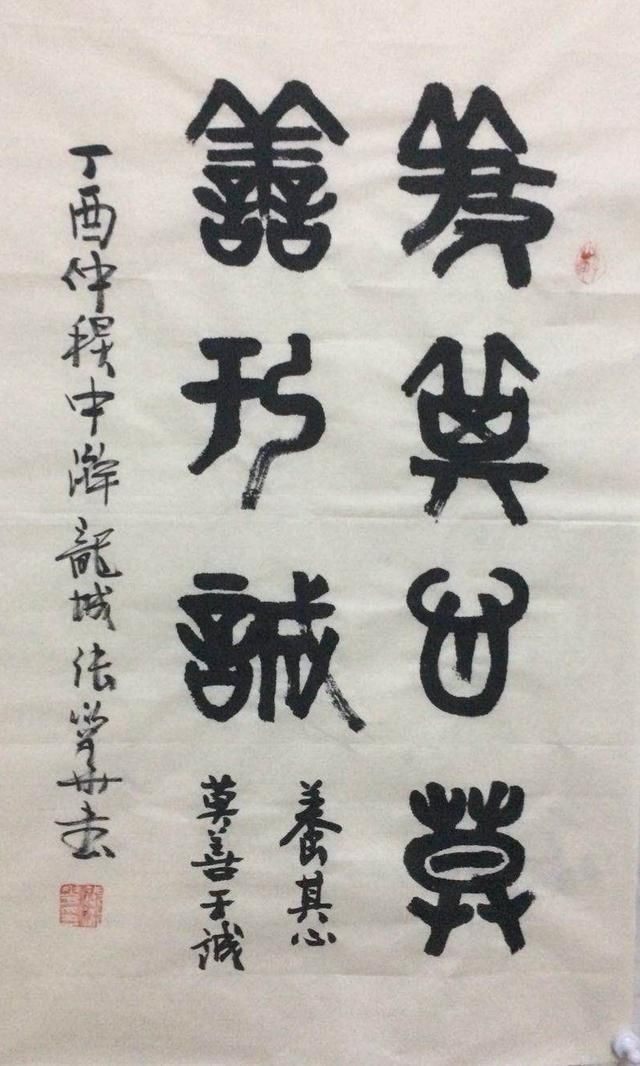 養其心莫
善于誠
養其心
莫善于誠
丁酉仲穐中澣龍城张書